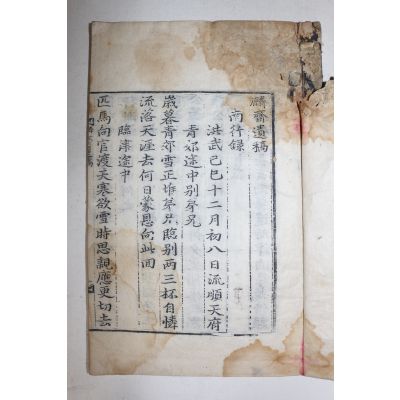 麟齋遺稿
南行錄
洪武己巳十二月初八日流順天府
青郊途中別弟兄
歲暮青郊雪正堆弟兄臨別两三杯自憐
流落天涯去何日蒙恩向此回
臨津途中
匹馬向官渡天寒欲雪時思親應更切去